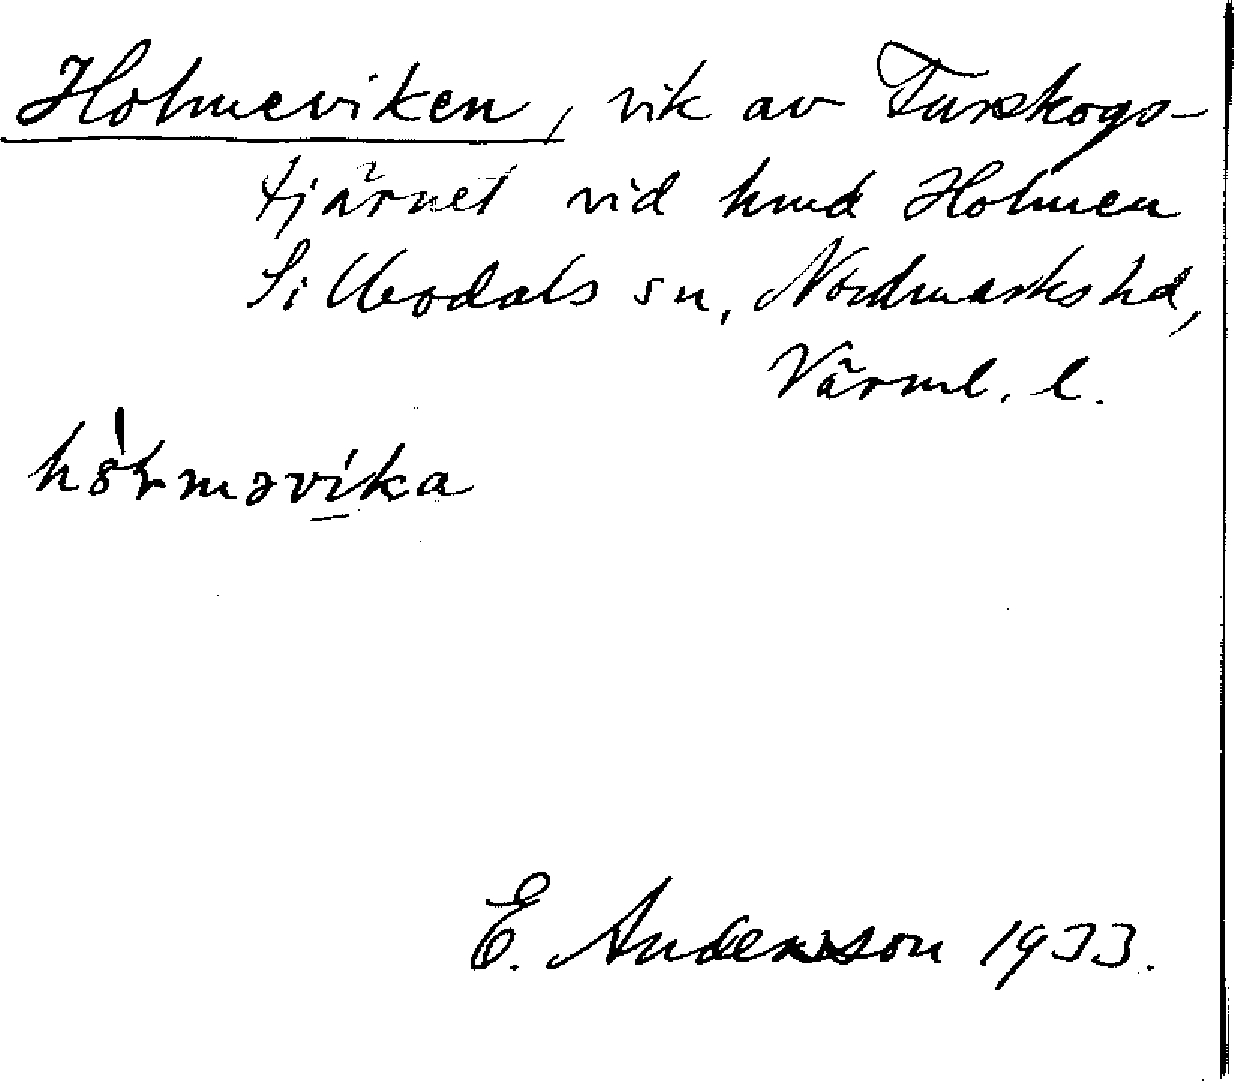 Holmeviken, vik av Turskogs-
tjärnet vid hmd Holmen
Silbodals sn, Nordmarks hd,
Värml. l.
E. Andersson 1933.